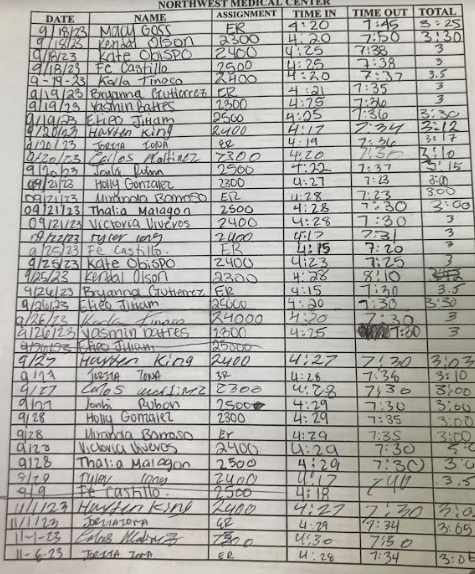 NORTHWEST MEDICAL CENTER
DATE NAME ASSIGNMENT TIME IN TIME OUT TOTAL
9/18/23 Macy Goss ER 4:20 7:45 3:25
9/18/23 Kendal Olson 2300 4:20 7:50 3:30
9/18/23 Kate Obispo 2400 4:25 7:38 3
9/18/23 Fe Castillo 2500 4:25 7:38 3
9-19-23 Karla Tinoco 2400 4:20 7:37 3.5
9/19/23 Bryanna Gutierrez ER 4:21 7:35 3
9/19/23 Yasmin Battes 2300 4:25 7:36 3
9/19/23 2500 4:25 7:36 3:30
9/20/23 Hayten King 2400 4:17 7:34 3:12
9/20/23 ER 4:19 7:36 3:17
9/20/23 Carlos Martinez 2300 4:20 7:30 3:10
9/20/23 Rubon 2500 4:22 7:37 3:15
09/21/23 Holly Gonzalez 2300 4:27 7:23 3:00
09/21/23 Miranda ER 4:28 7:23 3:00
09/21/23 Thalia Malagon 2500 4:28 7:30 3:00
09/21/23 Victoria Viveros 2400 4:28 7:30 3
Tyler 2400 4:17 7:31 3
9/25/23 Fe Castillo ER 4:15 7:20 3
9/25/23 Kate Obispo 2400 4:23 7:25 3
9/25/23 Kendal Olson 2300 4:28 8:10
9/26/23 Bryanna Gutierrez ER 4:15 7:30 3.5
9/26/23 4:20 7:30 3:30
9/26/23 Karla Tinoco 24000 4:20 7:30 3
9/26/23 Yasmin Battes 2300 4:25 7:30 3
9/26/23 25000
9/27 Hayten King 2400 4:27 7:30 3:03
9/27 4:28 7:38 3:10
9/27 Carlos Martinez 2300 4:28 7:30 3:00
9/27 Rubon 2500 4:29 7:30 3:01
9/28 Holly Gonzalez 2300 4:29 7:35 3:00
9/28 Miranda Er 4:29 7:35 3:00
9/28 Victoria Viveros 2400 4:29 7:30
9/28 Thalia Malagon 2500 4:29 7:30
Tyler 2400 4:17 3.5
Fe Castillo 2500 4:18
11/1/23 Hayten King 2400 4:27 7:30
11/1/23 ER 4:29 7:34 3:05
11-1-23 Carlos Martinez 4:30 7:50
11-6-23 ER 4:28 7:34 3:05